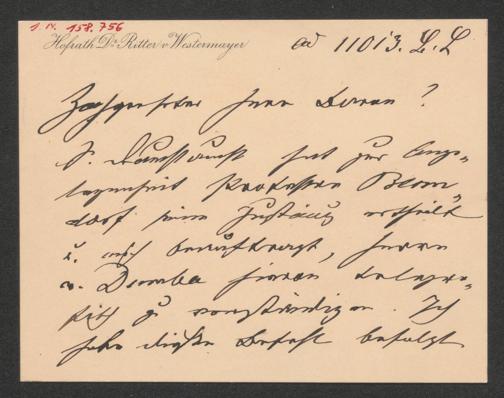 I.N. 158.756
Hofrath Dr. Ritter v. Westermayer
ad 11013. L.L
Hochgeehrter Herr Baron!
S. Durchlaucht hat zur Ange-
legenheit Professor Benn-
dorf seine Zustäug ertheilt
u. mich beauftragt, Herrn
v. Dumba hievon telegra-
fisch zu verständigen. Ich
habe diesen Befehl befolgt